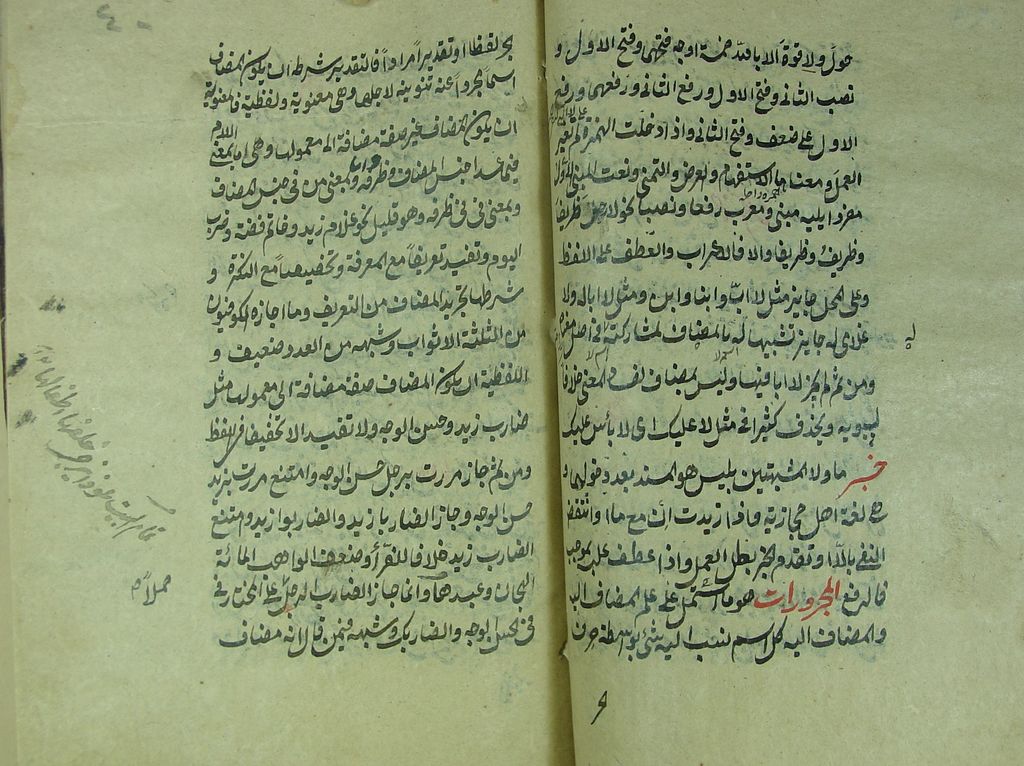 حول ولا قوة الا بالله خمسة اوجه فتحهما وفتح الاول و
نصب الثانى وفتح الاول ورفع الثانى ورفعهما ورفع
الاول على ضعف وفتح الثانى واذا دخلت الهمزة لم تغير
العمل ومعناها الاستفهام والعرض والتمنى ونعت المبنى الاول
مفردا يليه مبنى ومعرب رفعا ونصبا نحو لا رجل ظريف
وظريف وظريفا والا فالاعراب والعطف على اللفظ
وعلى المحل جايز مثل لا اب وابنا وابن ومثل لا ابا له ولا
غلامى له جايز تشبيها له بالمضاف لمشاركته فى اصل معناه
ومن ثم لم يجز لا ابا فيها وليس بمضاف لفساد المعنى خلافا
لسيبويه ويحذف كثيرا فى مثل لا عليك اى لا بأس عليك
خبر ما ولا المشبهتين بليس هو المسند بعد دخولهما و
هى لغة اهل حجازية واذا زيدت ان مع ما او انتقض
النفى بالا او تقدم الخبر بطل العمل واذا عطف عليه بموجب
فالرفع المجرورات هو ما اشتمل على علم المضاف اليه
والمضاف اليه كل اسم نسب اليه شئ بواسطة حرف
جر لفظا او تقديرا مرادا فالتقدير شرطه ان يكون المضاف
اسما مجردا عنه تنوينه لاجلها وهى معنوية ولفظية فالمعنوية
ان يكون المضاف غير صفة مضافة الى معمولها وهى اما بمعنى اللام
فيما عدا جنس المضاف وظرفه واما بمعنى من فى جنس المضاف
او بمعنى فى فى ظرفه وهو قليل نحو غلام زيد وخاتم فضة وضرب
اليوم وتفيد تعريفا مع المعرفة وتخصيصا مع النكرة و
شرطها تجريد المضاف من التعريف وما اجازه الكوفيون
من الثلثة الاثواب وشبهه من العدد ضعيف و
اللفظية ان يكون المضاف صفة مضافة الى معمولها مثل
ضارب زيد وحسن الوجه ولا تفيد الا تخفيفا فى اللفظ
ومن ثم جاز مررت برجل حسن الوجه وامتنع مررت بزيد
حسن الوجه وجاز الضاربا زيد والضاربوا زيد وامتنع
الضارب زيد خلافا للفراء وضعف الواهب المائة
الهجان وعبدها وانما جاز الضارب الرجل على المختار فى
فى الحسن الوجه والضاربك وشبهه فيمن قال انه مضاف